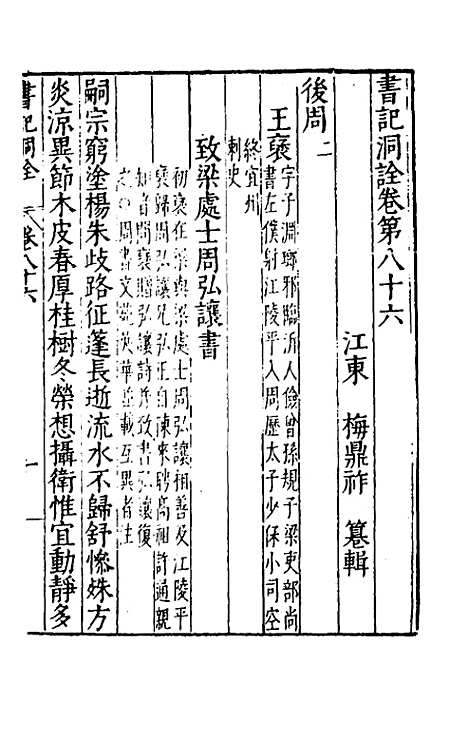 書記洞詮卷第八十六
江東　梅鼎祚　篹輯
後周二
王褒
字子淵瑯邪臨沂人儉曾孫規子梁吏部尚
書左僕射江陵平入周歷太子少保小司空
終宜州
刺史
致梁處士周弘讓書
初褒在梁與梁處士周弘讓相善及江陵平
襃歸周弘讓兄弘正自陳來聘高祖許通親
知音問襃贈弘讓詩并致書弘讓復
之〇周書文苑英華並載互異者注
嗣宗窮塗楊朱歧路征蓬長逝流水不歸舒慘姝方
炎涼異節木皮春厚桂樹冬榮想攝衛惟宜動靜多
書記洞全　卷八十六　一